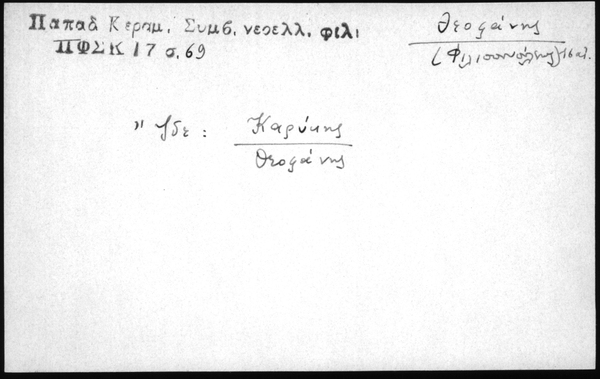 Παπαδ Κεραμ. Συμβ. νεοελλ. φιλι
ΠΦΣΚ 17 σ. 69
Θεοφάνης
(Φιλιππουπόλεως) 16 αι.
" Ἴδε : Καρύκης
Θεοφάνης